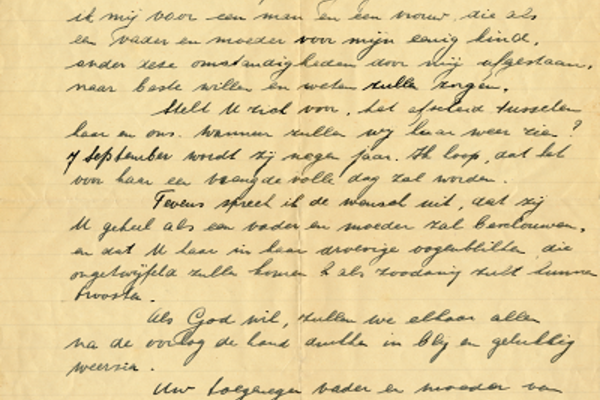 ik mij voor een man en een vrouw, die als
een vader en moeder voor mijn eenig kind,
onder deze omstandigheden door mij afgestaan,
naar beste willen en weten zullen zorgen.
Stelt U zich voor, het afscheid tusschen
haar en ons. Wanneer zullen wij haar weer zien?
7 September wordt zij negen jaar. Ik hoop, dat het
voor haar een vreugde volle dag zal worden.
Tevens spreek ik de wensch uit, dat zij
U geheel als een vader en moeder zal beschouwen,
en dat U haar in haar droevige oogenblikken, die
ongetwijfeld zullen komen als zoodanig zult kunnen
troosten.
Als God wil, zullen we elkaar allen
na de oorlog de hand drukken in blij en gelukkig
weerzien.
Uw toegenegen vader en moeder van